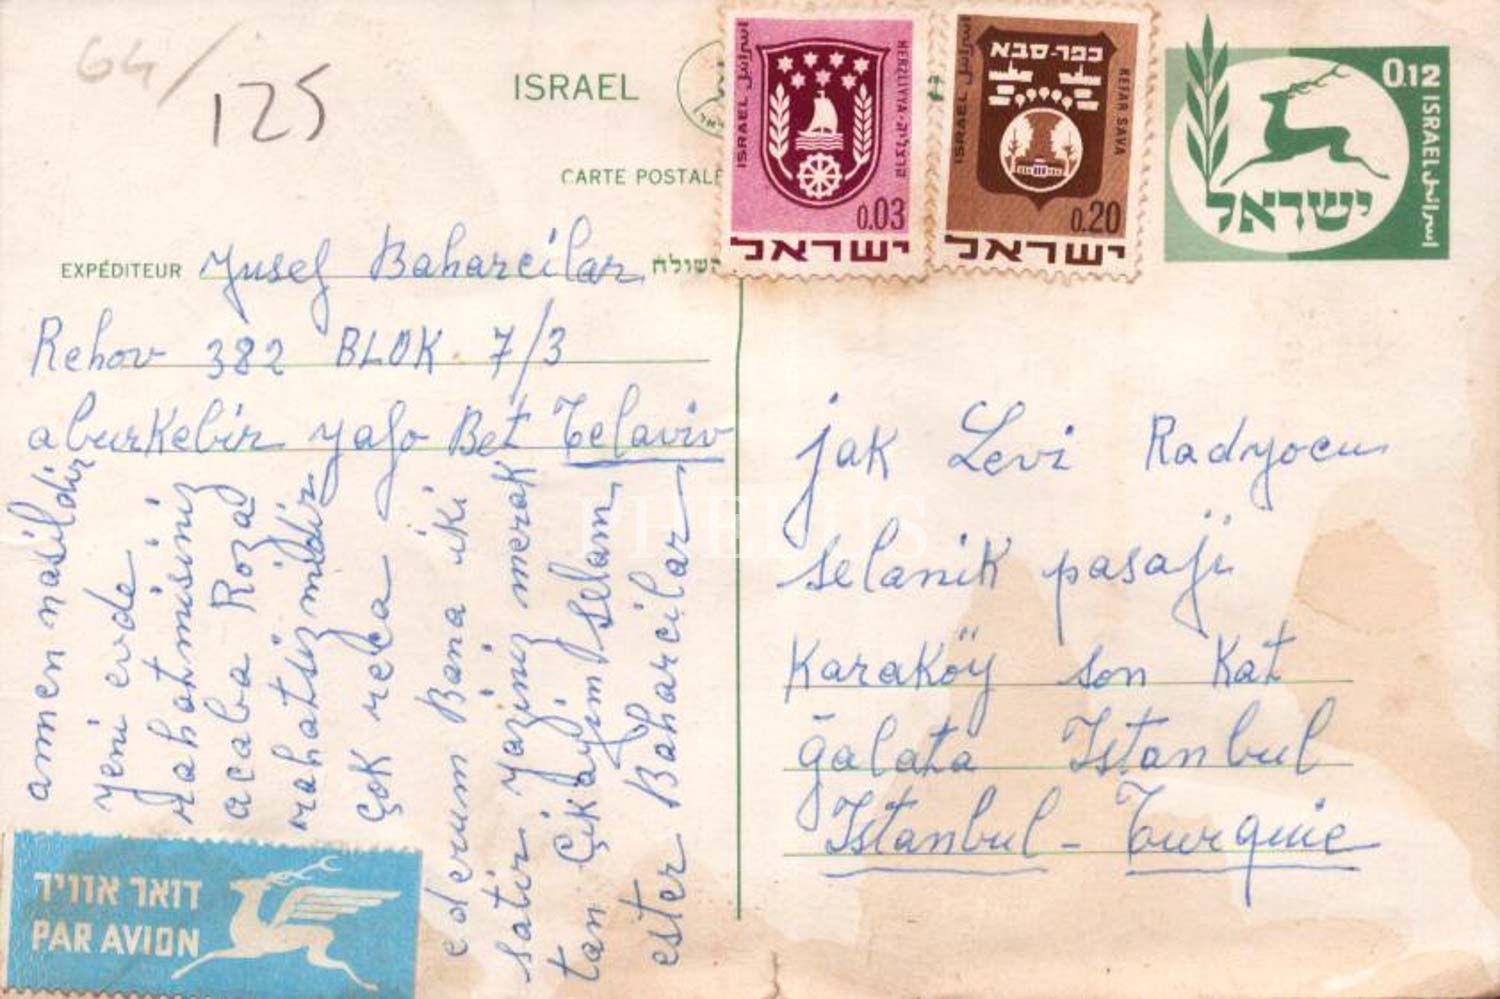 64/125
ISRAEL
CARTE POSTALE
EXPÉDITEUR Yusef Baharcilar השולח
Rehov 382 BLOK 7/3
aburkebir yafo Bet Telaviv
annen nasildir
yeni evde
rahatmisiniz
acaba Roza
rahatsizmidir
çok reca
ederum Bana iki
satir yaziniz merak
tan çikayim selam
ester Baharcilar
דואר אוויר
PAR AVION
ISRAEL اسرائيل
HERZLIYYA - הרצליה
0.03
ישראל
ISRAEL اسرائيل
כפר-סבא
KEFAR SAVA
0.20
ישראל
0.12
ISRAEL اسرائيل
ישראל
jak Levi Radyocu
selanik pasaji
Karaköy son Kat
galata Istanbul
Istanbul - Turquie
PHEBUS